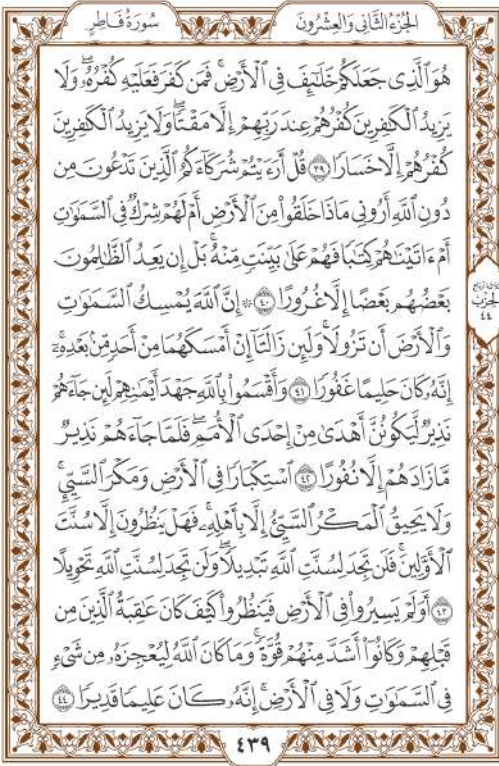 الجُزْءُ الثَّانِي وَالعِشْرُونَ
سُورَةُ فَاطِرٍ
هُوَ ٱلَّذِى جَعَلَكُمْ خَلَٰٓئِفَ فِى ٱلْأَرْضِۚ فَمَن كَفَرَ فَعَلَيْهِ كُفْرُهُۥۖ وَلَا
يَزِيدُ ٱلْكَٰفِرِينَ كُفْرُهُمْ عِندَ رَبِّهِمْ إِلَّا مَقْتًاۖ وَلَا يَزِيدُ ٱلْكَٰفِرِينَ
كُفْرُهُمْ إِلَّا خَسَارًا ٣٩ قُلْ أَرَءَيْتُمْ شُرَكَآءَكُمُ ٱلَّذِينَ تَدْعُونَ مِن
دُونِ ٱللَّهِ أَرُونِى مَاذَا خَلَقُوا۟ مِنَ ٱلْأَرْضِ أَمْ لَهُمْ شِرْكٌ فِى ٱلسَّمَٰوَٰتِ
أَمْ ءَاتَيْنَٰهُمْ كِتَٰبًا فَهُمْ عَلَىٰ بَيِّنَتٍ مِّنْهُۚ بَلْ إِن يَعِدُ ٱلظَّٰلِمُونَ
بَعْضُهُم بَعْضًا إِلَّا غُرُورًا ٤٠ ۞ إِنَّ ٱللَّهَ يُمْسِكُ ٱلسَّمَٰوَٰتِ
وَٱلْأَرْضَ أَن تَزُولَاۚ وَلَئِن زَالَتَآ إِنْ أَمْسَكَهُمَا مِنْ أَحَدٍ مِّنۢ بَعْدِهِۦٓۚ
إِنَّهُۥ كَانَ حَلِيمًا غَفُورًا ٤١ وَأَقْسَمُوا۟ بِٱللَّهِ جَهْدَ أَيْمَٰنِهِمْ لَئِن جَآءَهُمْ
نَذِيرٌ لَّيَكُونُنَّ أَهْدَىٰ مِنْ إِحْدَى ٱلْأُمَمِۖ فَلَمَّا جَآءَهُمْ نَذِيرٌ
مَّا زَادَهُمْ إِلَّا نُفُورًا ٤٢ ٱسْتِكْبَارًا فِى ٱلْأَرْضِ وَمَكْرَ ٱلسَّيِّئِۚ
وَلَا يَحِيقُ ٱلْمَكْرُ ٱلسَّيِّئُ إِلَّا بِأَهْلِهِۦۚ فَهَلْ يَنظُرُونَ إِلَّا سُنَّتَ
ٱلْأَوَّلِينَۚ فَلَن تَجِدَ لِسُنَّتِ ٱللَّهِ تَبْدِيلًاۖ وَلَن تَجِدَ لِسُنَّتِ ٱللَّهِ تَحْوِيلًا
٤٣ أَوَلَمْ يَسِيرُوا۟ فِى ٱلْأَرْضِ فَيَنظُرُوا۟ كَيْفَ كَانَ عَٰقِبَةُ ٱلَّذِينَ مِن
قَبْلِهِمْ وَكَانُوٓا۟ أَشَدَّ مِنْهُمْ قُوَّةًۚ وَمَا كَانَ ٱللَّهُ لِيُعْجِزَهُۥ مِن شَىْءٍ
فِى ٱلسَّمَٰوَٰتِ وَلَا فِى ٱلْأَرْضِۚ إِنَّهُۥ كَانَ عَلِيمًا قَدِيرًا ٤٤
الحِزْب
٤٤
٤٣٩